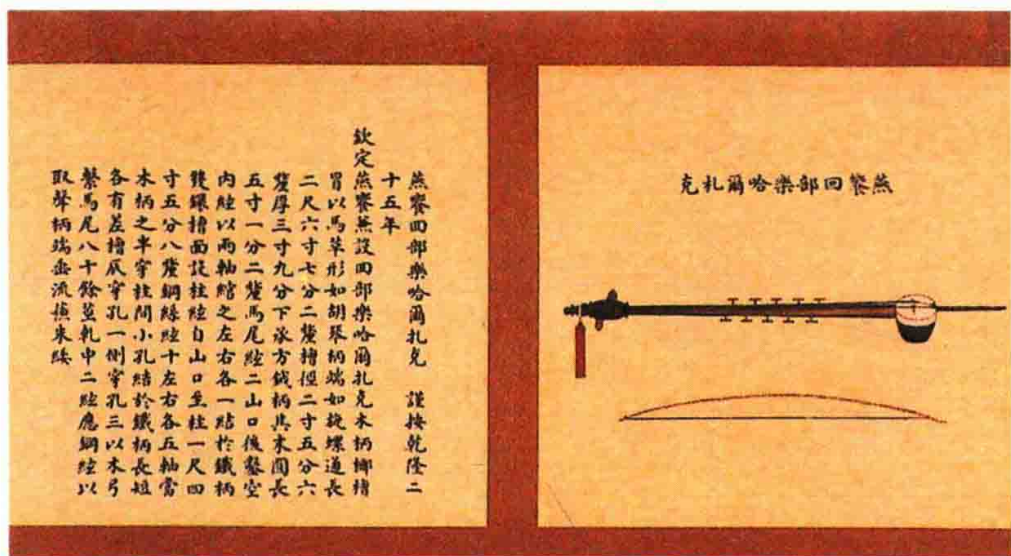 燕饗回部樂哈爾札克
燕饗回部樂哈爾扎克　謹按乾隆二
十五年
欽定燕饗兼設回部樂哈爾扎克木柄椰槽
冒以馬革形如胡琴柄端如旋螺通長
二尺六寸七分二釐槽徑二寸五分六
釐厚三寸九分下承方鐵柄其末圓長
五寸一分二釐馬尾絃二山口後鑿空
內絃以兩軸綰之左右各一結於鐵柄
雙鐶槽面設柱絃自山口至柱一尺四
寸五分八釐鋼絲絃十左右各五軸當
木柄之半穿柱間小孔結於鐵柄長短
各有差槽底穿孔一側穿孔三以木弓
繫馬尾八十餘莖軋中二絃應鋼絃以
取聲柄端垂流蘇朱緌